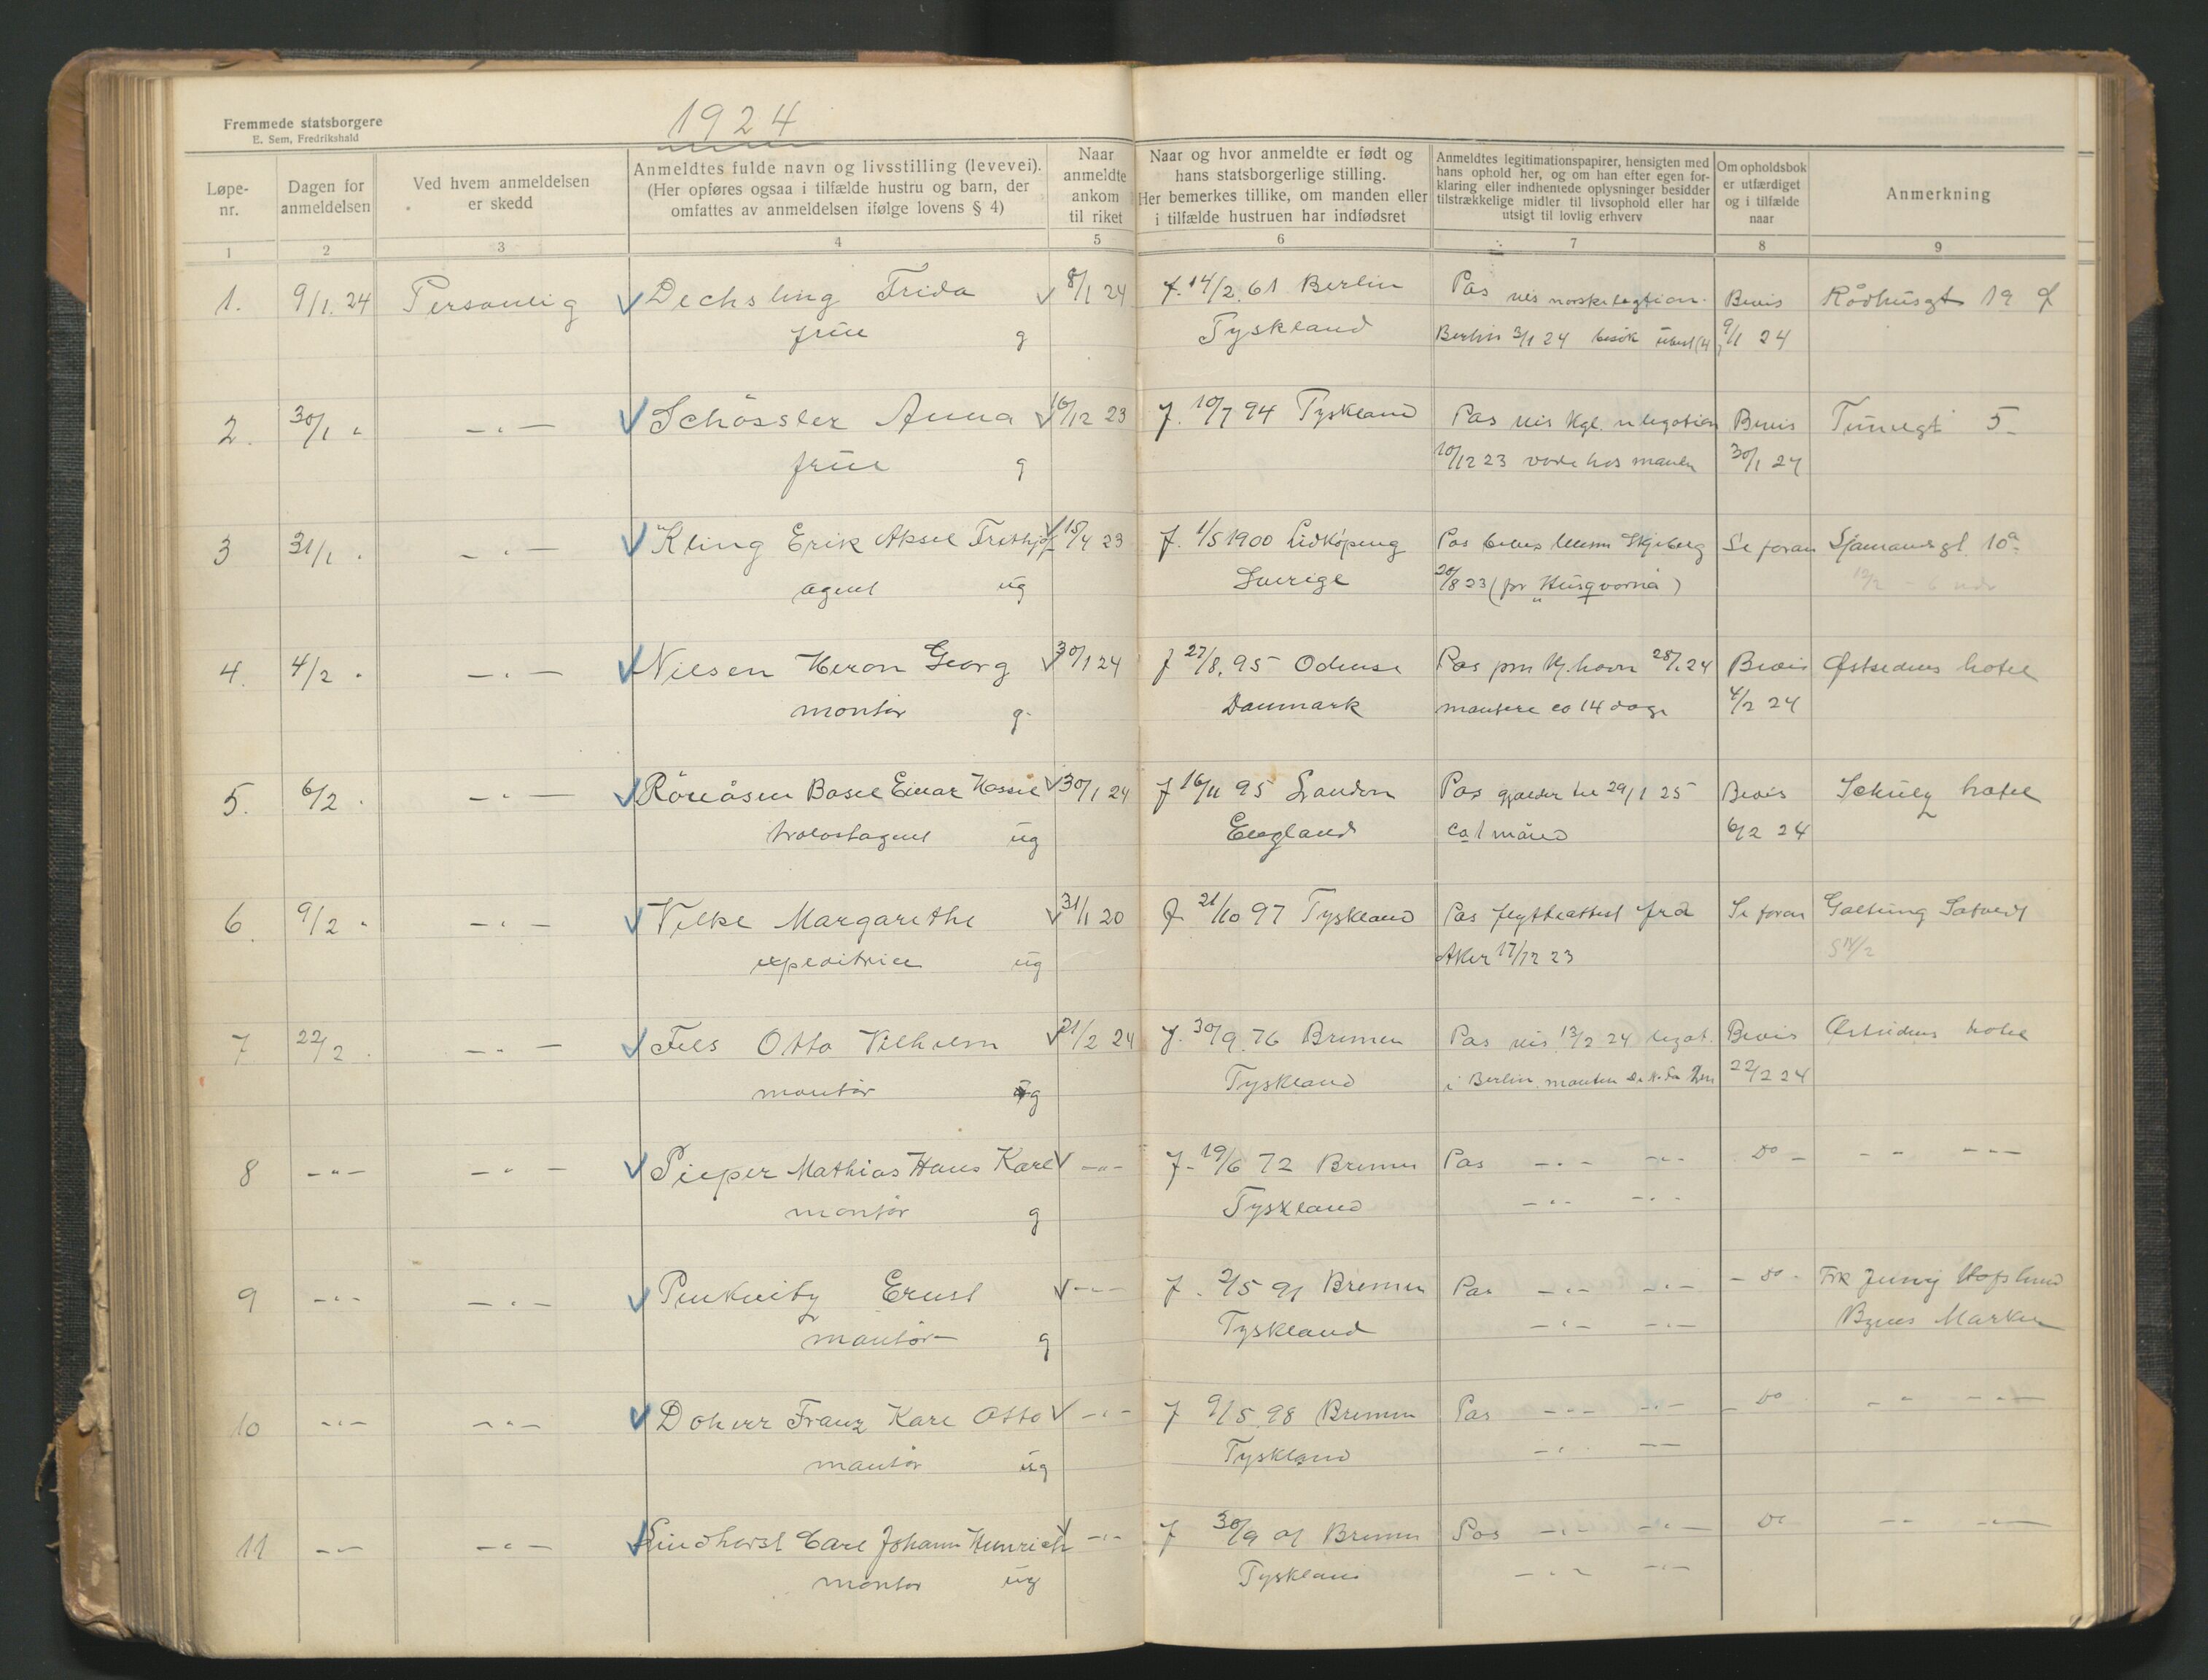 Fremmede statsborgere
E. Sem, Fredrikshald
1924
Løpe-nr.
Dagen for anmeldelsen
Ved hvem anmeldelsen er skedd
Anmeldtes fulde navn og livsstilling (levevei).
(Her opføres ogsaa i tilfælde hustru og barn, der
omfattes av anmeldelsen ifølge lovens § 4)
Naar anmeldte ankom til riket
Naar og hvor anmeldte er født og
hans statsborgerlige stilling.
Her bemerkes tillike, om manden eller
i tilfælde hustruen har indfødsret
Anmeldtes legitimationspapirer, hensigten med
hans ophold her, og om han efter egen for-
klaring eller indhentede oplysninger besidder
tilstrækkelige midler til livsophold eller har
utsigt til lovlig erhverv
Om opholdsbok
er utfærdiget
og i tilfælde
naar
Anmerkning
1 2 3 4 5 6 7 8 9
1. 9/1. 24 Personlig Dechsling Frida 8/1 24 f. 14/2. 61 Berlin Pas vis norske legation Bevis Rådhusgt 19
frue g Tyskland Berlin 3/1 24 besøk 9/1 24
2. 30/1 " - " - Schössler Anna 16/12 23 f. 10/7 94 Tyskland Pas vis Kgl. n legation Bevis Tunegt 5
frue g 10/12 23 hos manden 30/1 24
3 31/1 . - " - Kling Erik Aksel Frithjof 15/4 23 f. 1/5 1900 Lidköping Pas Skjeberg Se foran Sjømandsgt. 10a
agent ug Sverige 20/8 23 (pr "Husqvarna)
4. 4/2 . - " - Nilsen Heron Georg 30/1 24 f 27/8. 95 Odense Pas pm Kj.havn 28/1 24 Bevis Østsidens hotel
montør g. Danmark montere ca 14 dage 4/2 24
5. 6/2 . - " - Röneåsen Basil Einar Hassel 30/1 24 f 16/11 95 London Pas gjælder til 29/1 25 Bevis Schulz hotel
ug England ca 1 måned 6/2 24
6. 9/2 " - " - Vilke Margarethe 31/1 20 f. 21/10 97 Tyskland Pas flytteattest fra Se foran Galtung
expeditrice ug Aker 17/12 23
7 22/2 . - " - Fels Otto Vilhelm 21/2 24 f. 30/9. 76 Bremen Pas vis. 13/2 24 legat. Bevis Østsidens hotel
montør g Tyskland i Berlin. 22/2 24
8 - " - - " - Pieper Mathias Hans Karl - " - f. 19/6 72 Bremen Pas - " - - " - Do - - " - - " -
montør g Tyskland - " - - " -
9 - " - - " - Ernst - " - f. 2/5 91 Bremen Pas - " - - " - - Do - Frk Jenny Hafslund
montør g Tyskland - " - - " - Byens Marker
10 - " - - " - Franz Karl Otto - " - f 9/5 98 Bremen Pas - " - - " - - Do - " - - " -
montør ug Tyskland - " - - " -
11 - " - - " - Lindhorst Carl Johann Heinrich - " - f 30/9 01 Bremen Pas - " - - " - Do - " - - " -
montør ug Tyskland - " - - " -